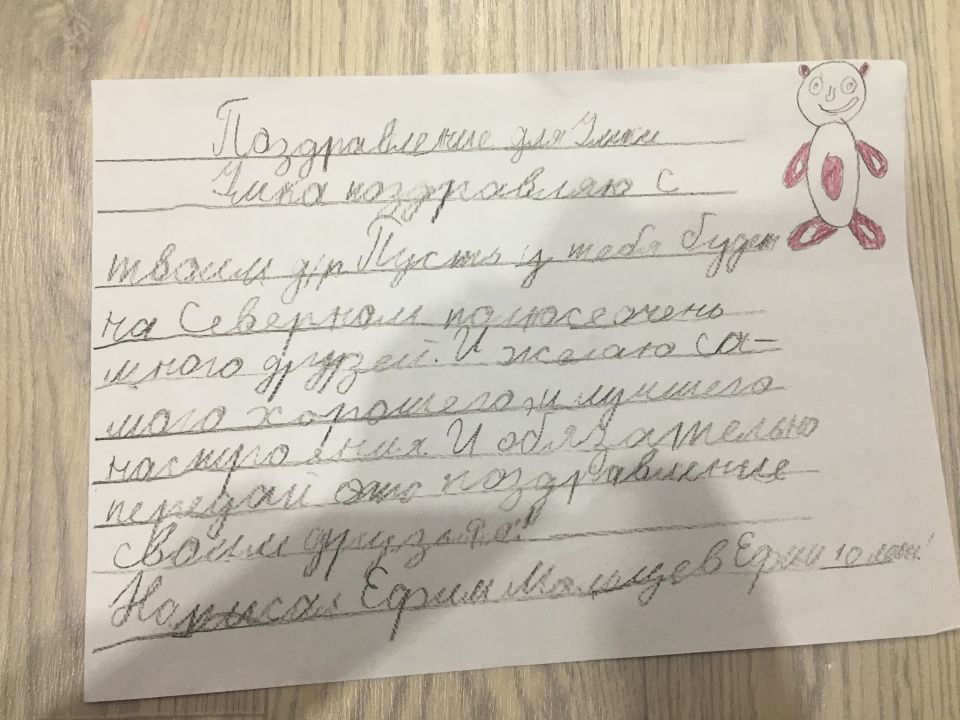 Поздравление для Умки
Умка поздравляю с
твоим д/р Пусть у тебя будет
на Северном полюсе очень
много друзей. И желаю са-
мого хорошего и лучшего
настроения. И обязательно
передай это поздравление
своим друзьям!
Написал Ефим Мальцев Ефим 10 лет!